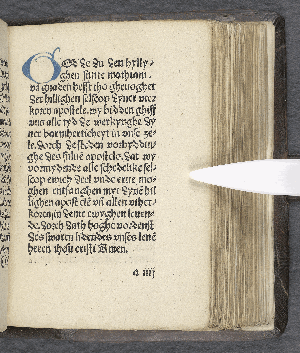 God de du den hylly-
ghen sunte mathiam.
vā gnaden hefft tho ghevoghet
der hillighen selscop dyner vter
koren apostele. wy bidden ghiff
vns alle tyd de werkynghe dy
ner barmherticheyt in vnse ze-
le. dorch desseden vorbyddin-
ghe des sulue apostels. dat wy
vormydende alle schedelike sel-
scop ewich deel vnde ere mo-
ghen entfanghen myt dyne hil
lighen apostelē vñ allen vther-
korenen deme ewyghen leuen-
de. dorch dath hoghe vordenst
des swaren lidendes vnses leuē
heren ihesu cristi Amen.
a iiij